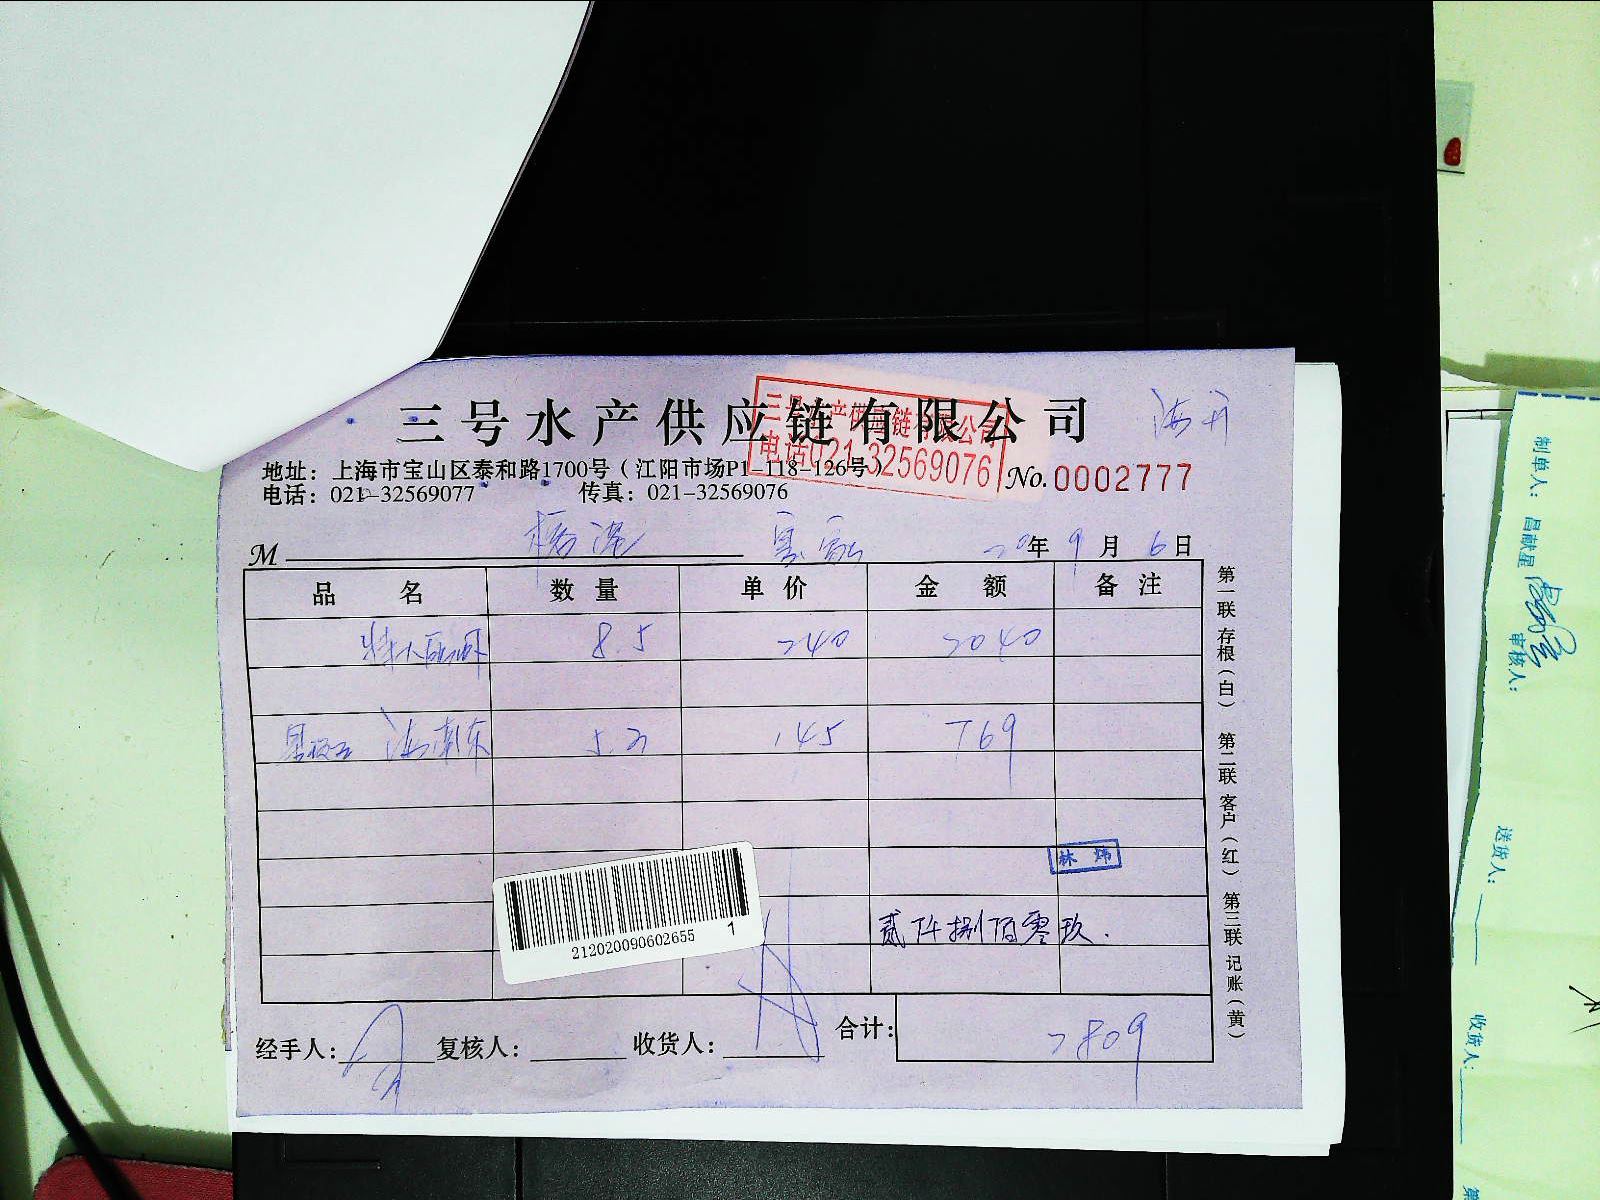 三号水产供应链有限公司
三号水产供应链有限公司
电话021-32569076
地址：上海市宝山区泰和路1700号（江阳市场P1-118-126号）
No.0002777
电话：021-32569077 传真：021-32569076
M
20年9月6日
品名 数量 单价 金额 备注
8.5 240 2040
海南东 5.3 145 769
林炜
贰仟捌佰零玖.
212020090602655 1
经手人： 复核人： 收货人： 合计： 2809
第一联 存根（白） 第二联 客户（红） 第三联 记账（黄）
制单人：昌献星
审核人：
送货人：
收货人：